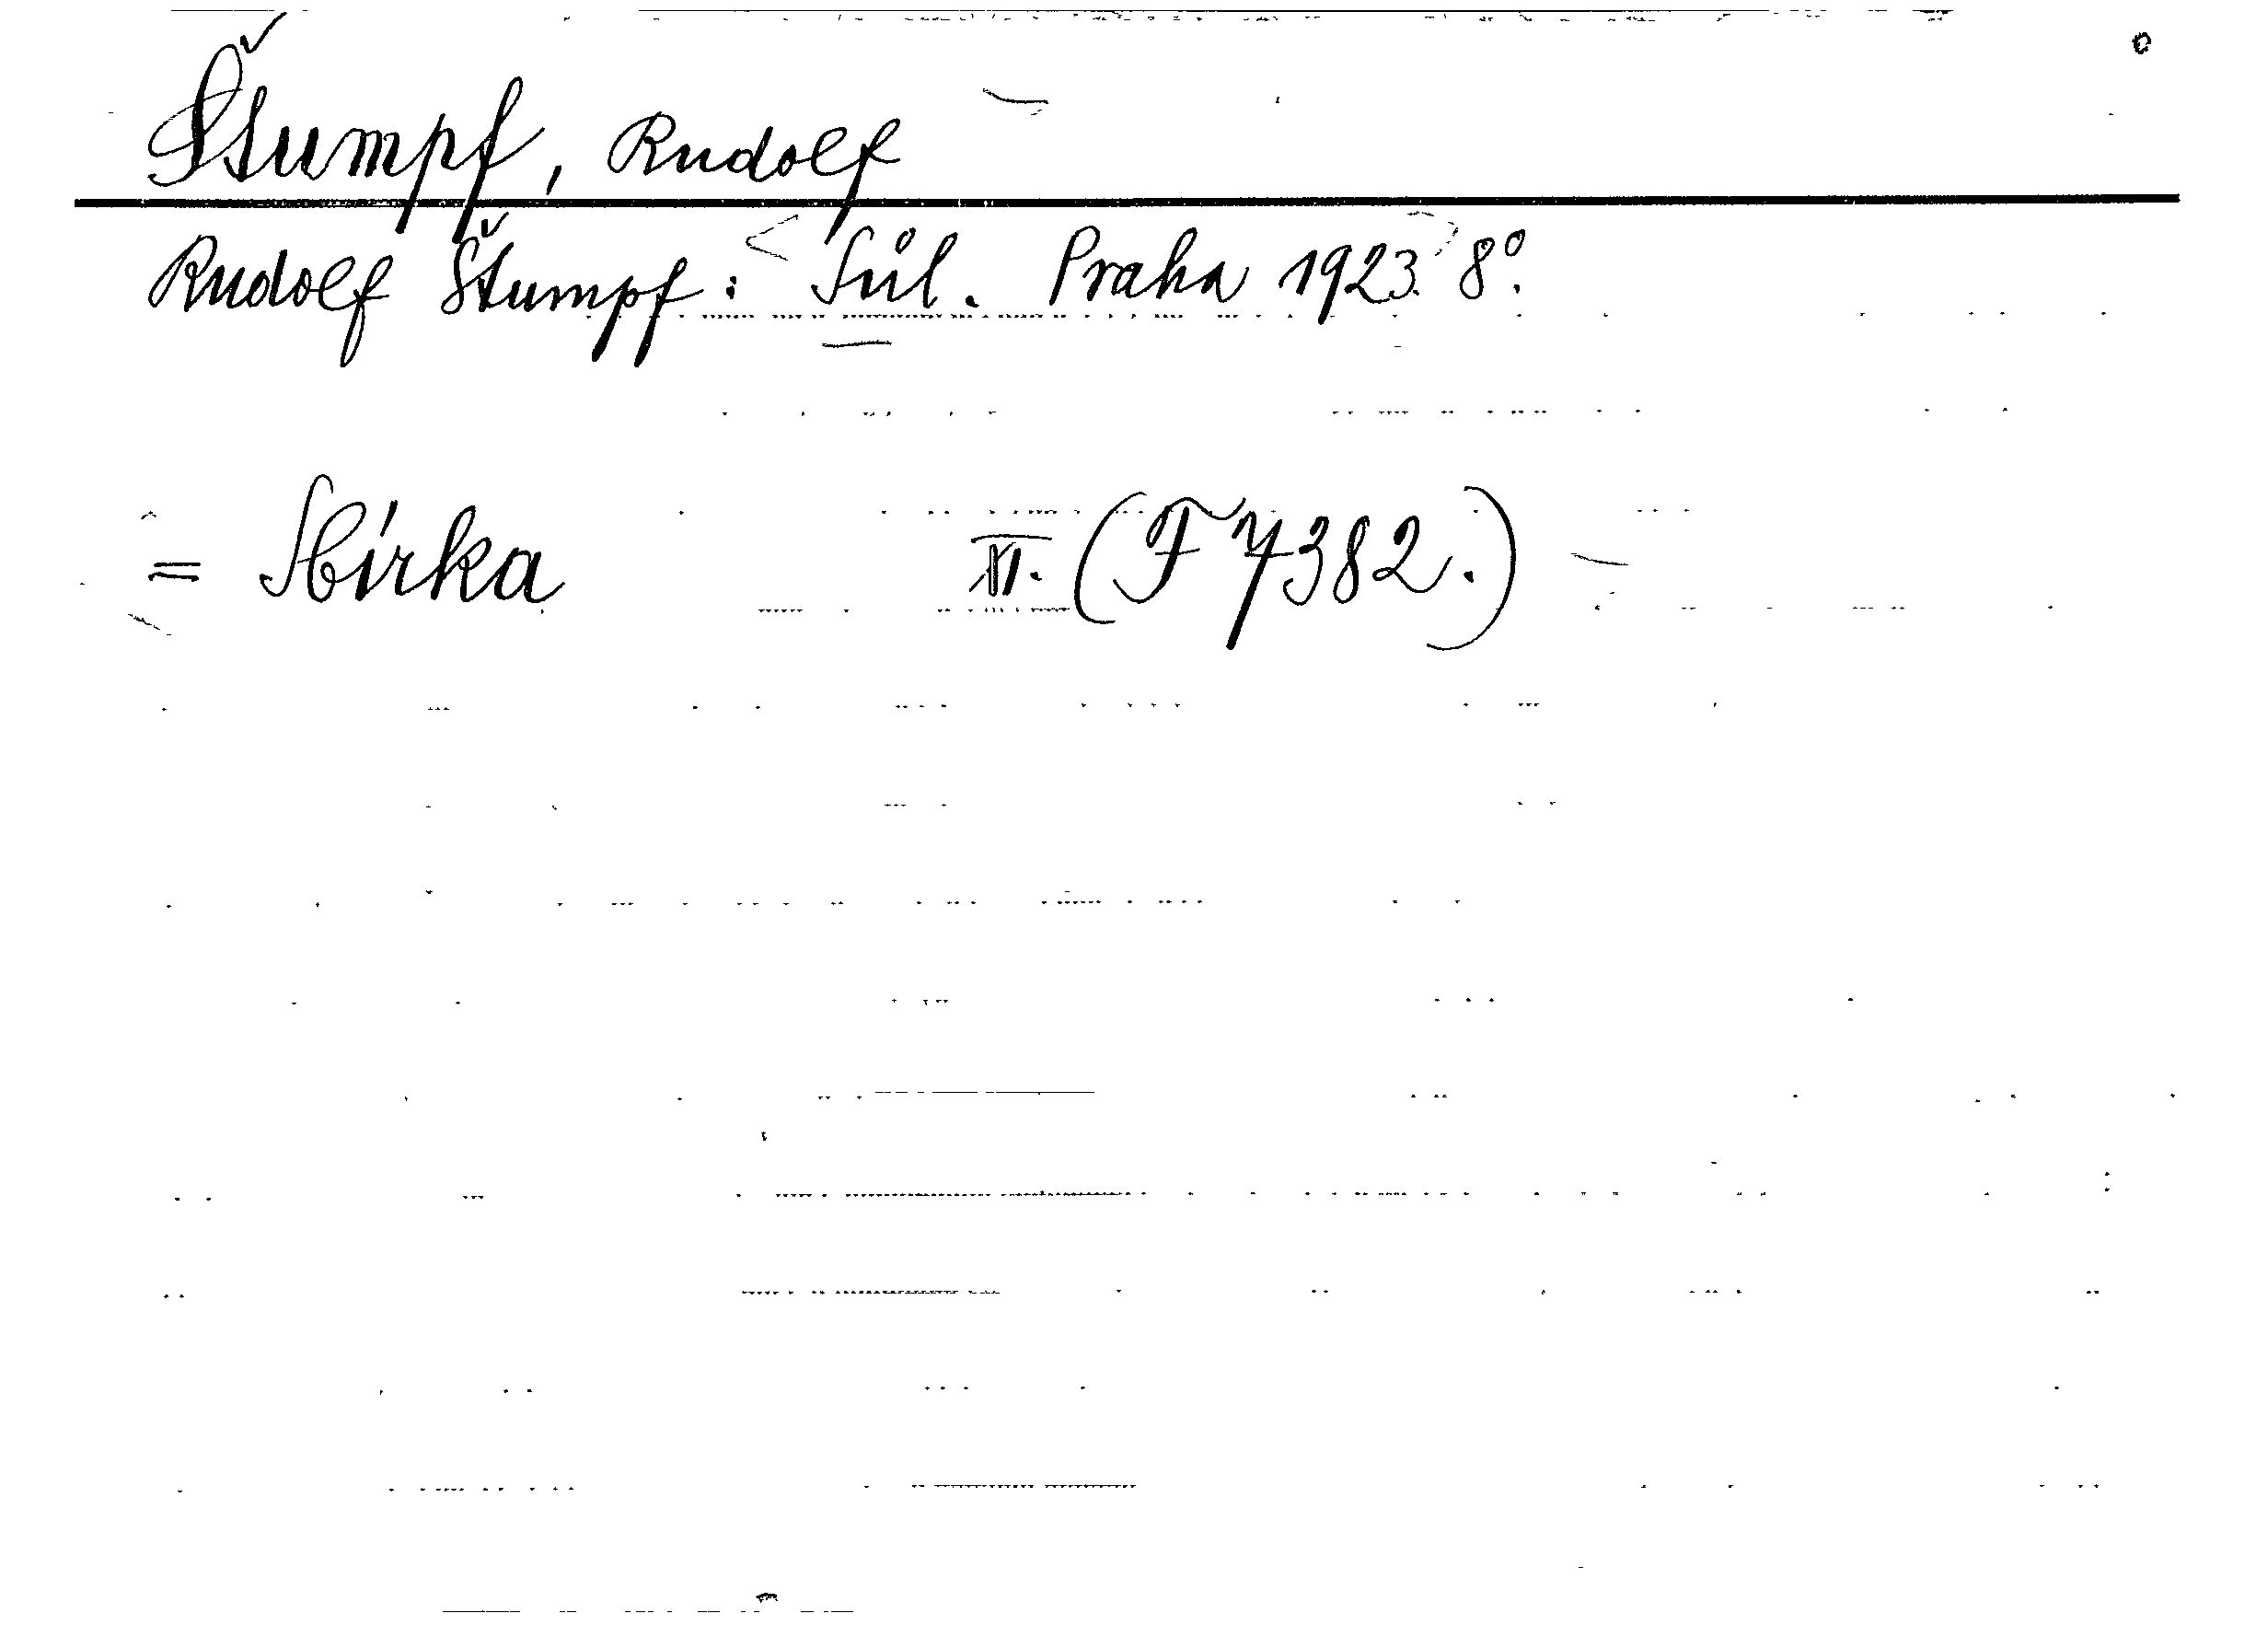 Štumpf, Rudolf
Rudolf Štumpf: Sůl. Praha 1923. 8°.
= Sbírka II. (F 7382.)